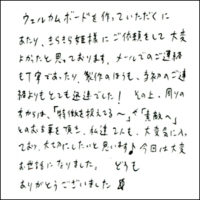 ウェルカムボードを作っていただくに
あたり、きらきら姫様にご依頼をして大変
よかったと思っております。メールでのご連絡
も丁寧であり、製作のほうも、当初のご連
絡よりもとても迅速でした! その上、周りの
方からは、「特徴を捉えてる〜」や「素敵〜」
とのお言葉を頂き、私達2人も、大変気に入っ
ており、大切にしたいと思います♪ 今回は大変
お世話になりました。 どうも
ありがとうございました